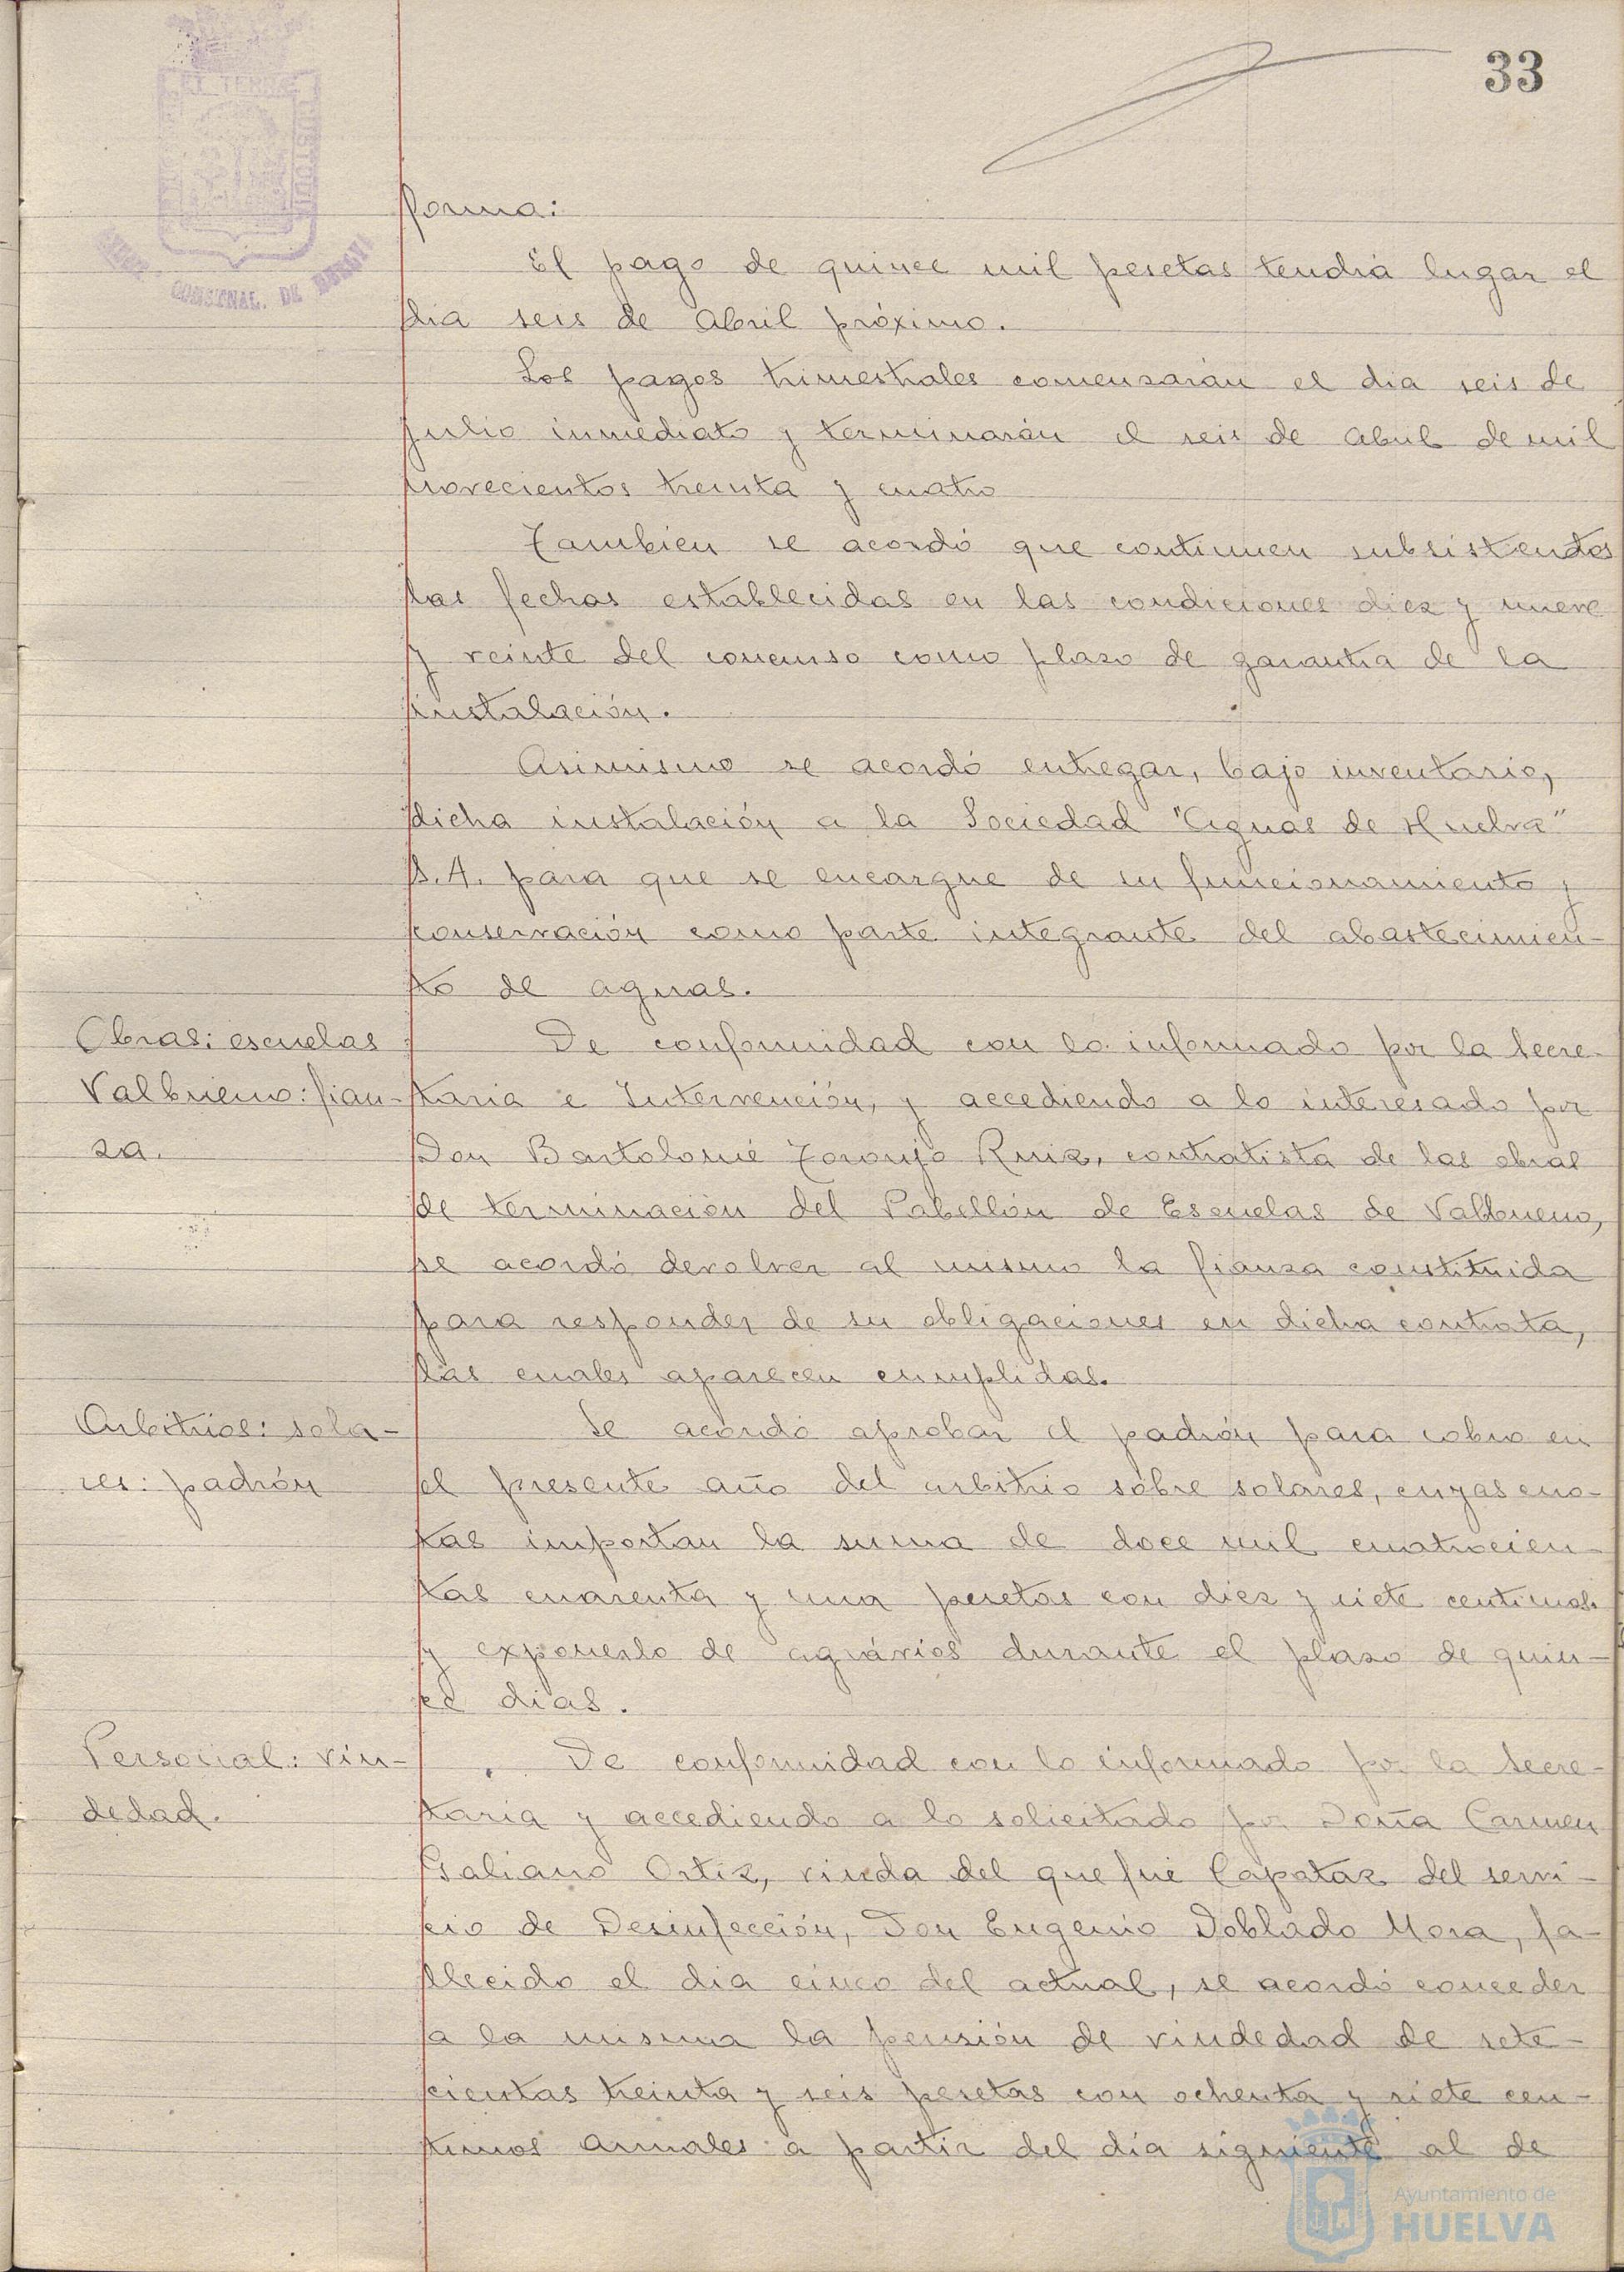 33
EL TERRÆ
CONSTNAL. DE HUELVA
forma:
El pago de quince mil pesetas tendrá lugar el
dia seis de Abril próximo.
Los pagos trimestrales comenzarán el dia seis de
julio inmediato y terminarán el seis de Abril de mil
novecientos treinta y cuatro
Tambien se acordó que continuen subsistentes
las fechas establecidas en las condiciones diez y nueve
y veinte del concurso como plazo de garantia de la
instalación.
Asimismo se acordó entregar, bajo inventario,
dicha instalación a la Sociedad "Aguas de Huelva"
S.A. para que se encargue de su funcionamiento y
conservación como parte integrante del abastecimien-
to de aguas.
Obras: escuelas
Valbueno: fian-
za.
De conformidad con lo informado por la Secre-
taria e Intervención, y accediendo a lo interesado por
Don Bartolomé Toronjo Ruiz, contratista de las obras
de terminación del Pabellón de Escuelas de Valbueno,
se acordó devolver al mismo la fianza constituida
para responder de su obligaciones en dicha contrata,
las cuales aparecen cumplidas.
Arbitrios: sola-
res: padrón
Se acordó aprobar el padrón para cobro en
el presente año del arbitrio sobre solares, cuyas cuo-
tas importan la suma de doce mil cuatrocien-
tas cuarenta y una pesetas con diez y siete centimos.
y exponerlo de agrávios durante el plazo de quin-
ce dias.
Personal: viu-
dedad.
De conformidad con lo informado por la Secre-
taria y accediendo a lo solicitado por Doña Carmen
Galiano Ortiz, viuda del que fué Capataz del servi-
cio de Desinfección, Don Eugenio Doblado Mora, fa-
llecido el dia cinco del actual, se acordó conceder
a la misma la pensión de viudedad de sete-
cientas treinta y seis pesetas con ochenta y siete cen-
timos anuales a partir del dia siguiente al de
Ayuntamiento de
HUELVA